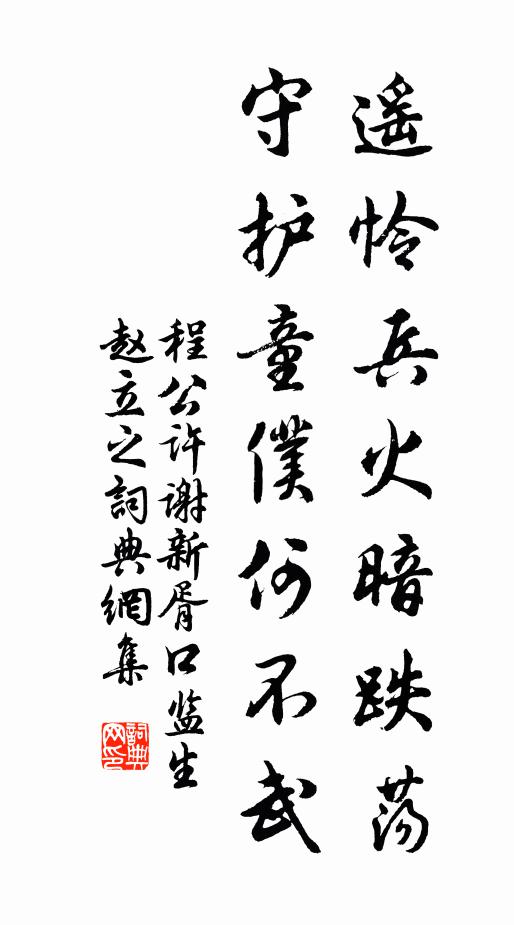 遥怜兵火暗跌荡
守护童僕何不武
程公许谢新胥口监生
赵立之詞典網集
詞典网印